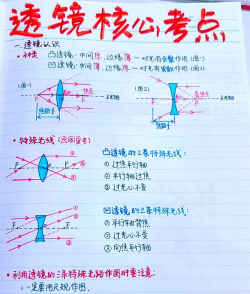 透镜核心考点
一.透镜认识
•种类 凸透镜:中间厚,边缘薄—对光有会聚作用(图一)
凹透镜:中间薄,边缘厚—对光有发散作用(图2)
(图一)
(图2)
主光轴
•特殊光线
凸透镜的三条特殊光线:
①过焦平行轴
②平行轴过焦
③过光心不变
F
F
①
②
③
凹透镜的三条特殊光线:
①平行轴背焦
②过光心不变
③向焦平行轴
F
F
①
②
③
•利用透镜的三条特殊光路作图时要注意:
1.一定要用尺规作图.